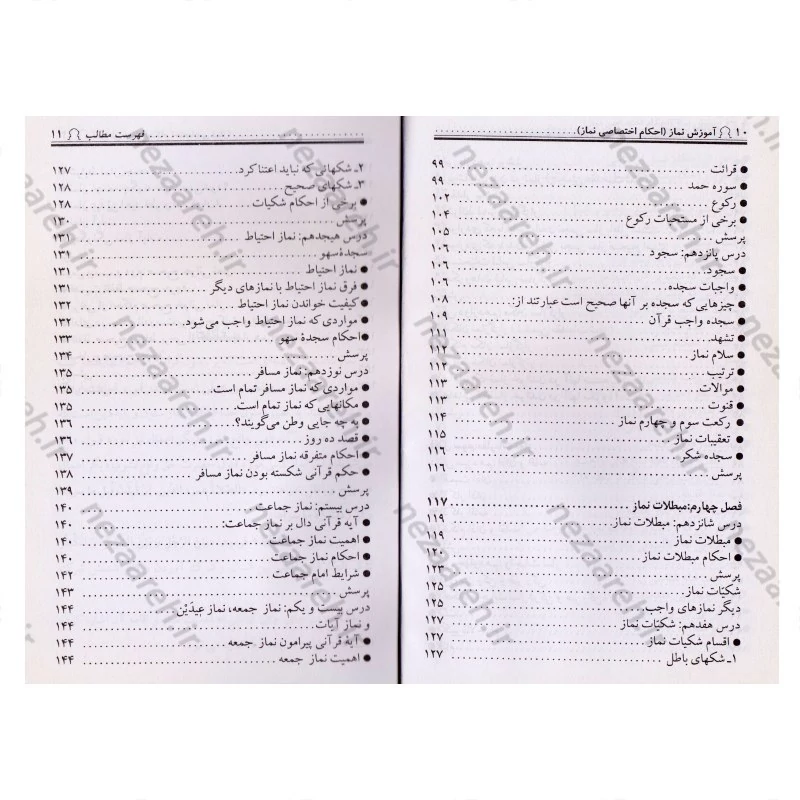 ۱۰ آموزش نماز (احکام اختصاصی نماز)
● قرائت ۹۹
● سوره حمد ۹۹
● رکوع ۱۰۲
● برخی از مستحبات رکوع ۱۰۴
پرسش ۱۰۵
درس پانزدهم: سجود ۱۰۶
● سجود. ۱۰۶
● واجبات سجده ۱۰۶
● چیزهایی که سجده بر آنها صحیح است عبارتند از: ۱۰۸
● سجده واجب قرآن ۱۰۹
● تشهد ۱۱۱
● سلام نماز ۱۱۲
● ترتیب ۱۱۲
● موالات ۱۱۳
● قنوت ۱۱۳
● رکعت سوم و چهارم نماز ۱۱۴
● تعقیبات نماز ۱۱۵
● سجده شکر ۱۱۶
پرسش ۱۱۶
فصل چهارم: مبطلات نماز ۱۱۷
درس شانزدهم: مبطلات نماز ۱۱۹
● مبطلات نماز ۱۱۹
● احکام مبطلات نماز ۱۲۰
پرسش ۱۲۳
شکیّات نماز ۱۲۵
دیگر نمازهای واجب ۱۲۵
درس هفدهم: شکیّات نماز ۱۲۷
● اقسام شکیات نماز ۱۲۷
۱ـ شکهای باطل ۱۲۷
فهرست مطالب ۱۱
۲ـ شکهائی که نباید اعتنا کرد. ۱۲۷
۳ـ شکهای صحیح ۱۲۸
● برخی از احکام شکیات ۱۲۸
پرسش ۱۳۰
درس هیجدهم: نماز احتیاط ۱۳۱
سجدهٔ سهو ۱۳۱
● نماز احتیاط ۱۳۱
● فرق نماز احتیاط با نمازهای دیگر ۱۳۱
● کیفیت خواندن نماز احتیاط ۱۳۲
● مواردی که نماز احتیاط واجب می‌شود. ۱۳۲
● احکام سجدهٔ سهو ۱۳۳
پرسش ۱۳۴
درس نوزدهم: نماز مسافر ۱۳۵
● مواردی که نماز مسافر تمام است. ۱۳۵
● مکانهایی که نماز تمام است. ۱۳۵
● به چه جایی وطن می‌گویند؟ ۱۳۶
● قصد ده روز ۱۳۶
● احکام متفرقه نماز مسافر ۱۳۷
● حکم قرآنی شکسته بودن نماز مسافر ۱۳۸
پرسش ۱۳۹
درس بیستم: نماز جماعت ۱۴۰
● آیه قرآنی دال بر نماز جماعت: ۱۴۰
● اهمیت نماز جماعت. ۱۴۰
● احکام نماز جماعت ۱۴۰
● شرایط امام جماعت ۱۴۲
پرسش ۱۴۳
درس بیست و یکم: نماز جمعه، نماز عیدَیْن ۱۴۴
و نماز آیات ۱۴۴
● آیهٔ قرآنی پیرامون نماز جمعه ۱۴۴
● اهمیت نماز جمعه ۱۴۴
nezaareh.ir